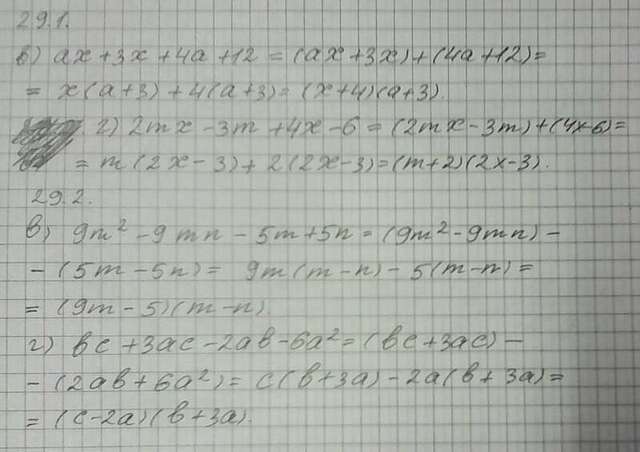 29.1.
в) ax + 3x + 4a + 12 = (ax + 3x) + (4a + 12) =
= x(a + 3) + 4(a + 3) = (x + 4)(a + 3).
г) 2mx - 3m + 4x - 6 = (2mx - 3m) + (4x - 6) =
= m(2x - 3) + 2(2x - 3) = (m + 2)(2x - 3).
29.2.
в) 9m² - 9mn - 5m + 5n = (9m² - 9mn) -
- (5m - 5n) = 9m(m - n) - 5(m - n) =
= (9m - 5)(m - n).
г) bc + 3ac - 2ab - 6a² = (bc + 3ac) -
- (2ab + 6a²) = c(b + 3a) - 2a(b + 3a) =
= (c - 2a)(b + 3a).